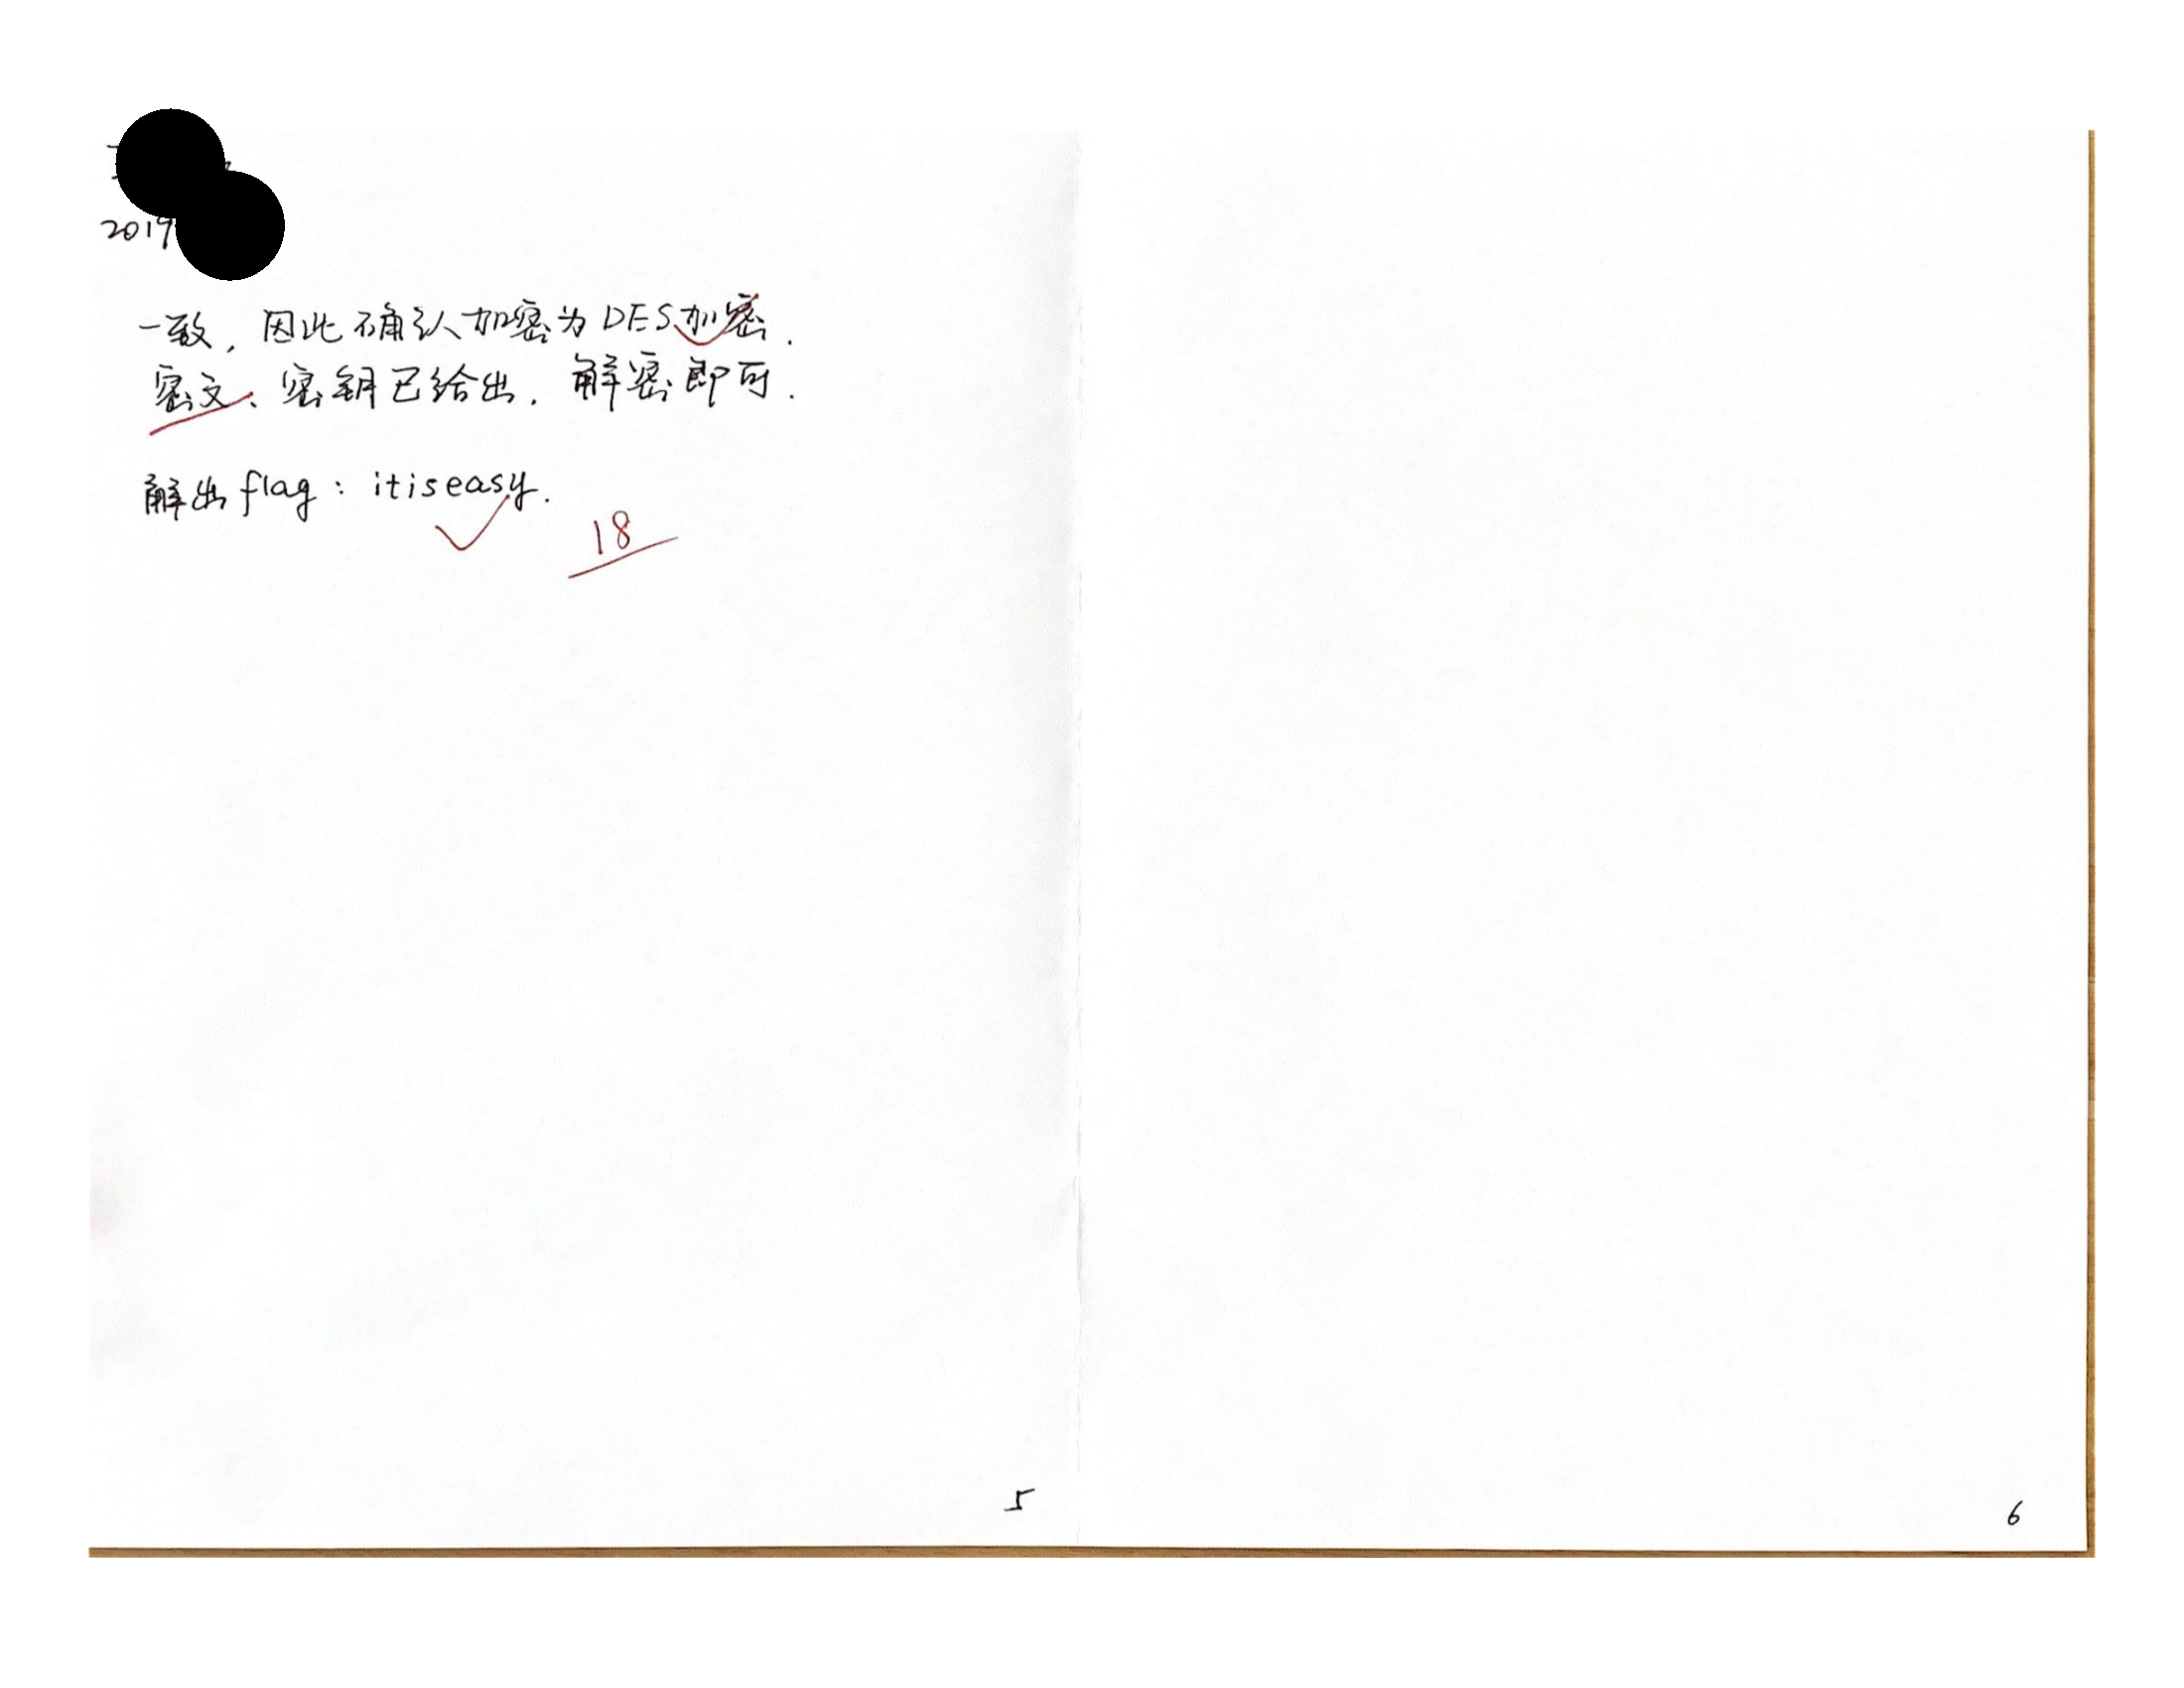 2019
一致，因此确认加密为DES加密.
密文、密钥已给出，解密即可.
解出flag：itiseasy.
18
5
6